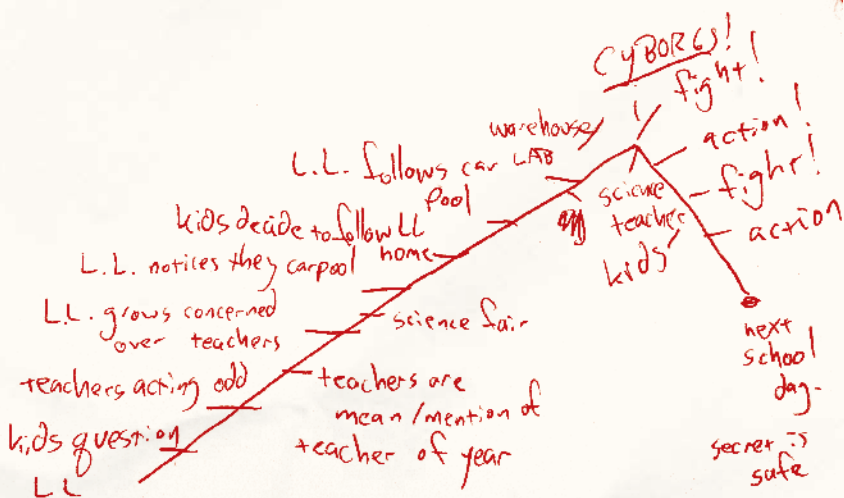 CYBORGS!
fight!
action!
fight!
action
warehouse/
LAB
L.L. follows car
pool
science
teacher
kids
kids decide to follow LL
home
L.L. notices they carpool
science fair
L.L. grows concerned
over teachers
teachers acting odd
teachers are
mean/mention of
teacher of year
kids question
LL
next
school
day-
secret is
safe